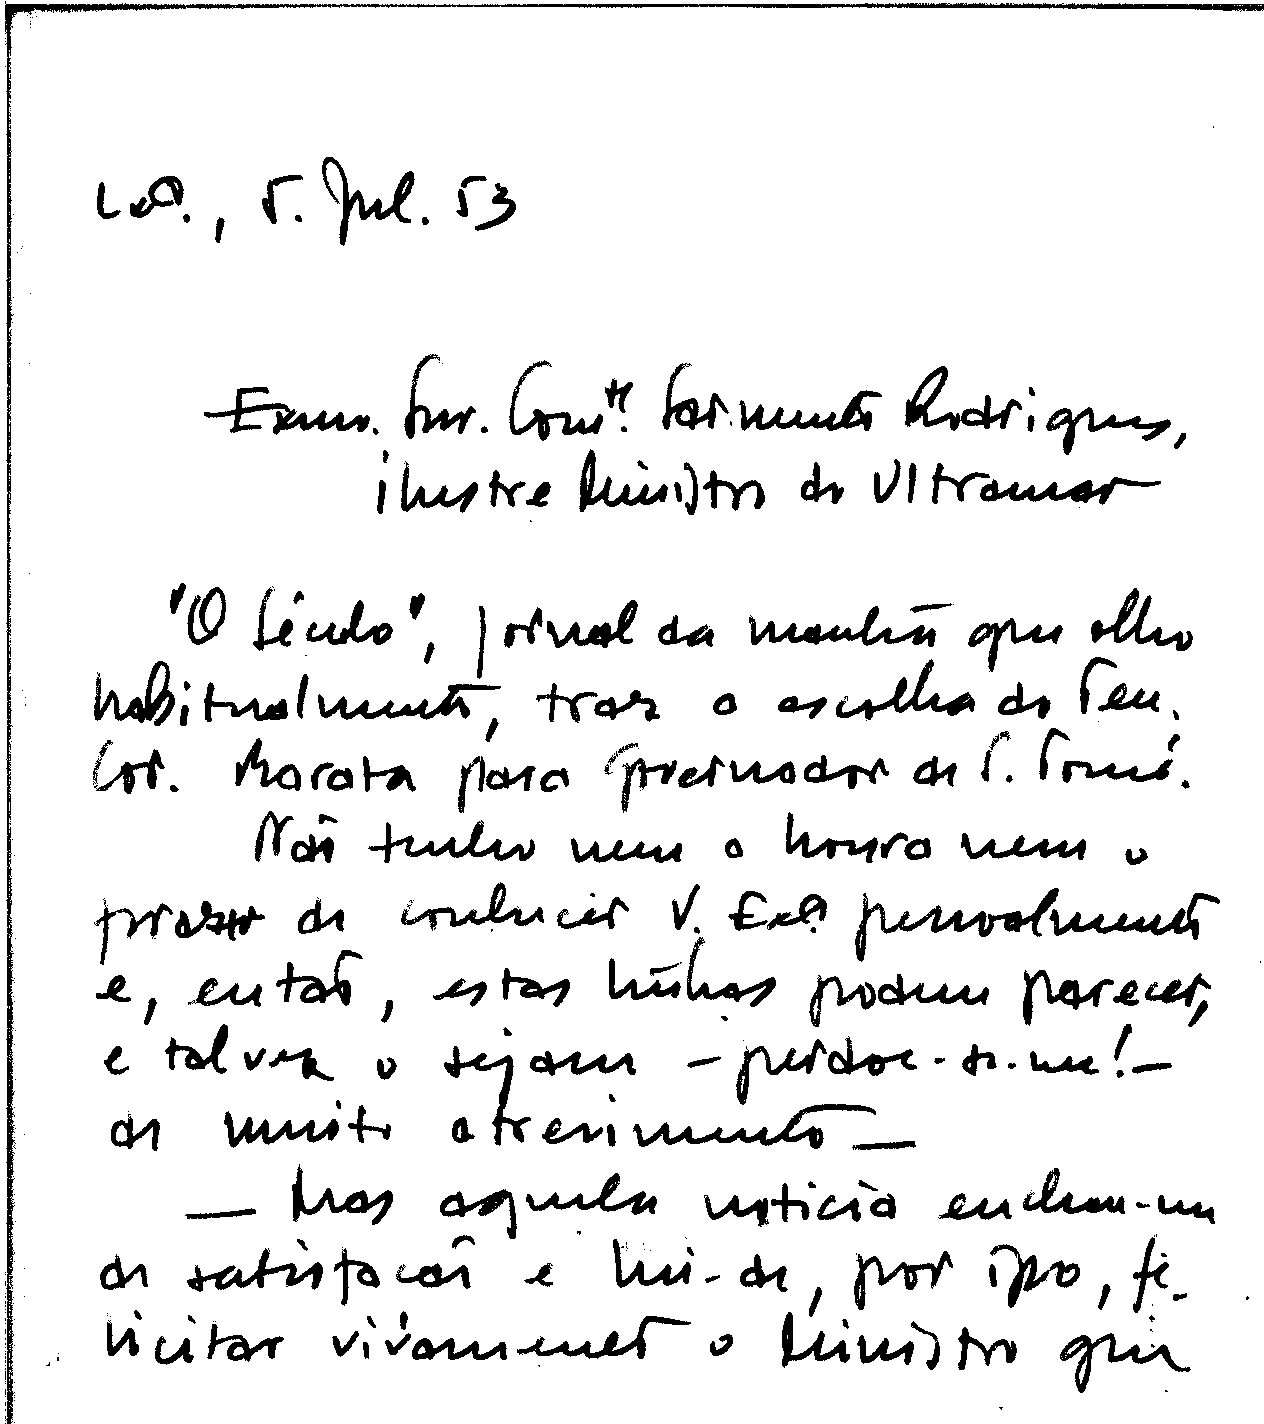 Lxª., 5. Jul. 53
Exmo. Snr. Comte. Sarmento Rodrigues,
ilustre Ministro do Ultramar
"O Século", jornal da manhã que olho
habitualmente, traz a escolha do Ten.
Cor. Marata para Governador de S. Tomé.
Não tenho nem a honra nem o
prazer de conhecer V. Exª. pessoalmente
e, então, estas linhas podem parecer,
e talvez o sejam – perdoe-se-me! –
de muito atrevimento –
– Mas aquela notícia encheu-me
de satisfação e hei-de, por isso, fe-
licitar vivamente o Ministro que